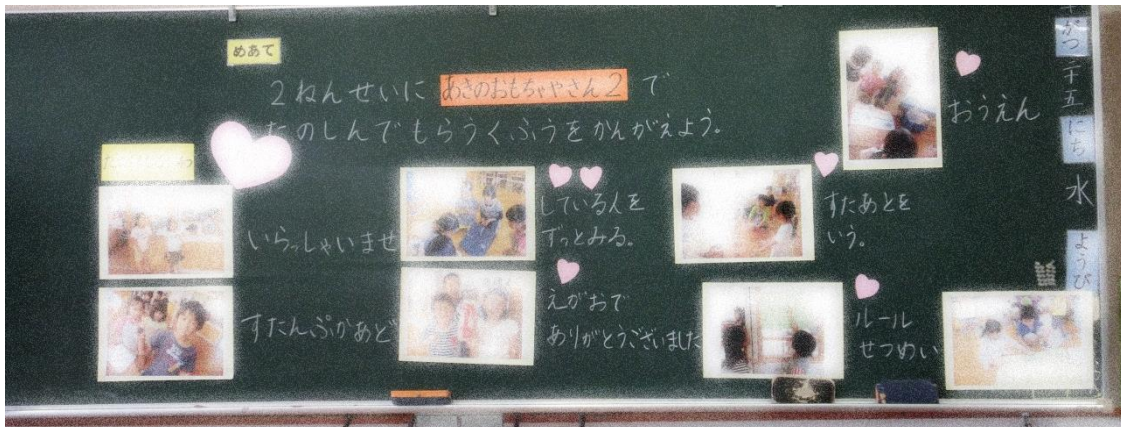 めあて
2ねんせいに あきのおもちゃやさん2 で
たのしんでもらうくふうをかんがえよう。
いらっしゃいませ
すたんぷかあど
している人を
ずっとみる。
えがおで
ありがとうございました
すたあとを
いう。
ルール
せつめい
おうえん
がつ二十五にち水ようび